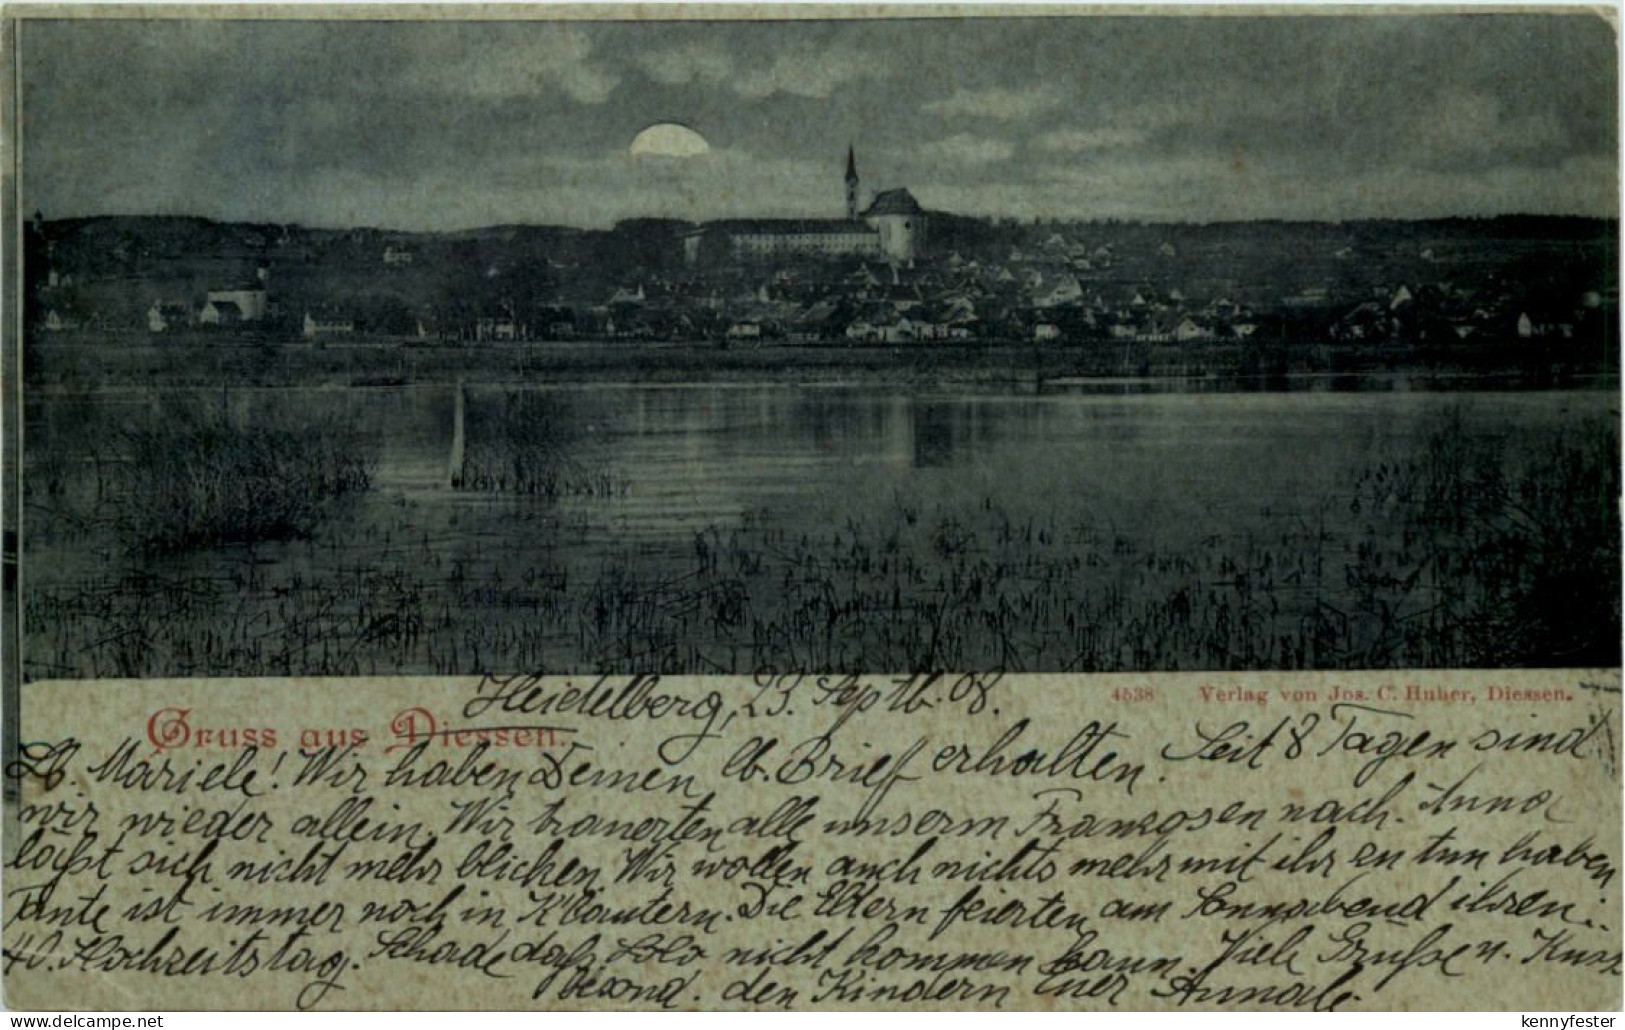 Heidelberg, 23. Septb. 08.
4538 Verlag von Jos. C. Huber, Diessen.
Gruss aus Diessen.
Lb. Mariele! Wir haben Deinen lb. Brief erhalten. Seit 8 Tagen sind
wir wieder allein. Wir trauerten alle unserm Franzosen nach. Anna
läßt sich nicht mehr blicken. Wir wollen auch nichts mehr mit ihr zu tun haben
Tante ist immer noch in K'lautern. Die Eltern feierten am Sonnabend ihren
40. Hochzeitstag. Schade daß Lolo nicht kommen kann. Viele Grüße u. Kuss
besond. den Kindern Euer
kennyfester